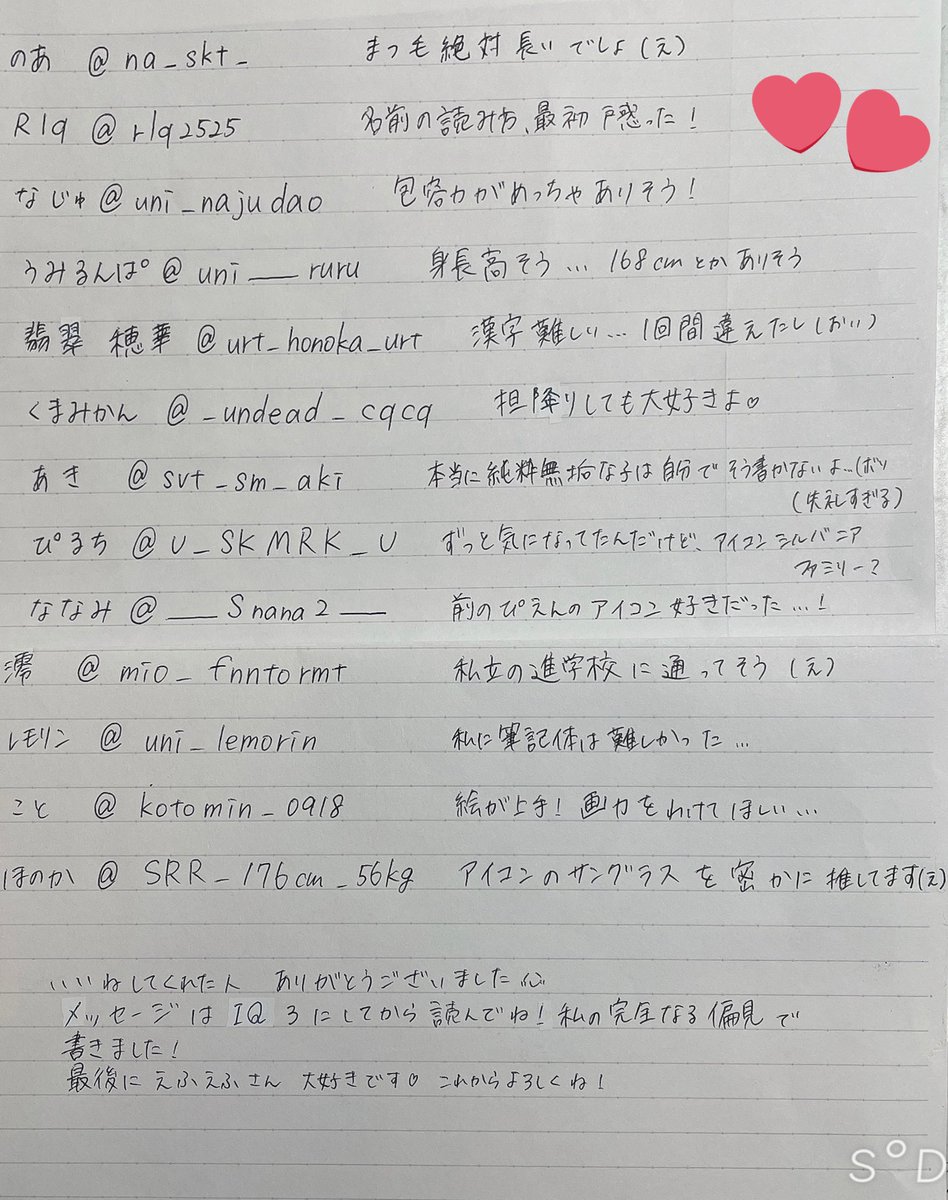 のあ @na_skt_ まつ毛絶対長いでしょ(え)
R1q @r1q2525 名前の読み方、最初戸惑った!
なじゅ@uni_najudao 包容力がめっちゃありそう!
うみるんぱ°@uni___ruru 身長高そう… 168cmとかありそう
翡翠 穂華 @urt_honoka_urt 漢字難しい…1回間違えたし(おい)
くまみかん @_undead_cqcq 担降りしても大好きよ♡
あき @svt_sm_aki 本当に純粋無垢な子は自分でそう書かないよ…(ボソ
(失礼すぎる)
ぴるち @U_SKMRK_U ずっと気になってたんだけど、アイコンシルバニア
ファミリー?
ななみ @___Snana2___ 前のぴえんのアイコン好きだった…!
澪 @mio_fnntormt 私立の進学校に通ってそう(え)
レモリン @uni_lemorin 私に筆記体は難しかった…
こと @kotomin_0918 絵が上手!画力をわけてほしい…
ほのか @SRR_176cm_56kg アイコンのサングラスを密かに推してます(え)
いいねしてくれた人 ありがとうございました
メッセージはIQ3にしてから読んでね!私の完全なる偏見で
書きました!
最後にえふえふさん 大好きです♡ これからよろしくね!
S°D